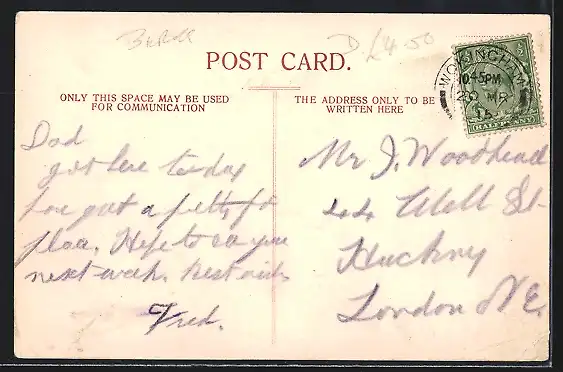 D. £4.50
POST CARD.
ONLY THIS SPACE MAY BE USED
FOR COMMUNICATION
THE ADDRESS ONLY TO BE
WRITTEN HERE
WOKINGHAM
10.45PM
22 MR
15
HALFPENNY
Dad
got here to day
have got a pretty fr
place. Hope to see you
next week. best wish
Fred.
Mr J. Woodhead
44 Well St
Hackney
London N.E.